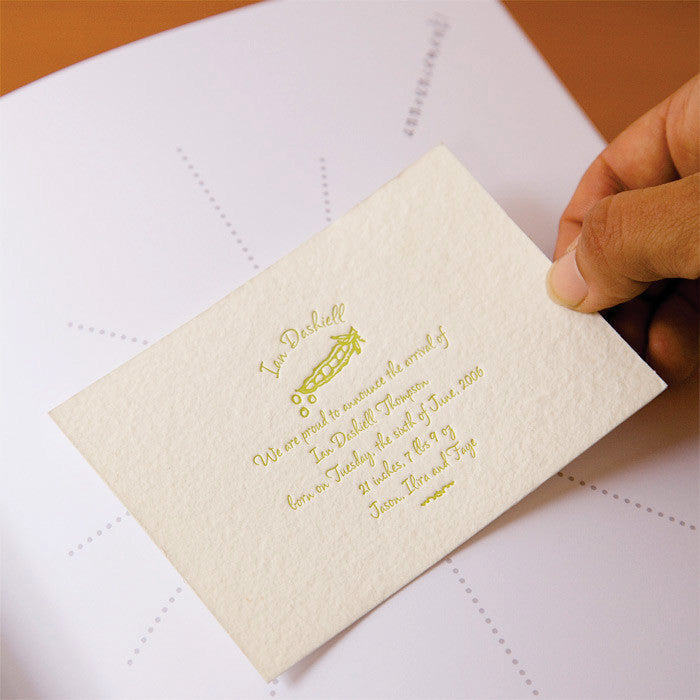 Ian Dashiell
We are proud to announce the arrival of
Ian Dashiell Thompson
born on Tuesday, the sixth of June, 2006
21 inches, 7 lbs 9 oz
Jason, Ilra and Faye